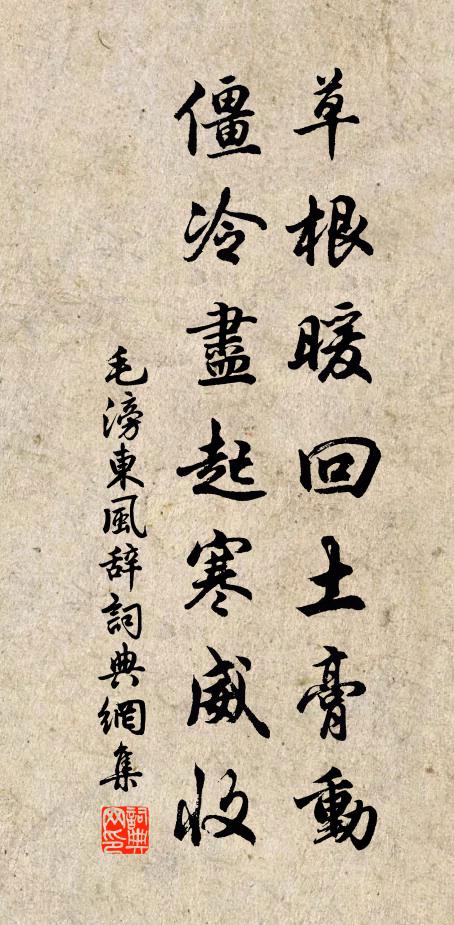 草根暖回土膏動
僵冷盡起寒威收
毛滂東風辞詞典網集
詞典网印